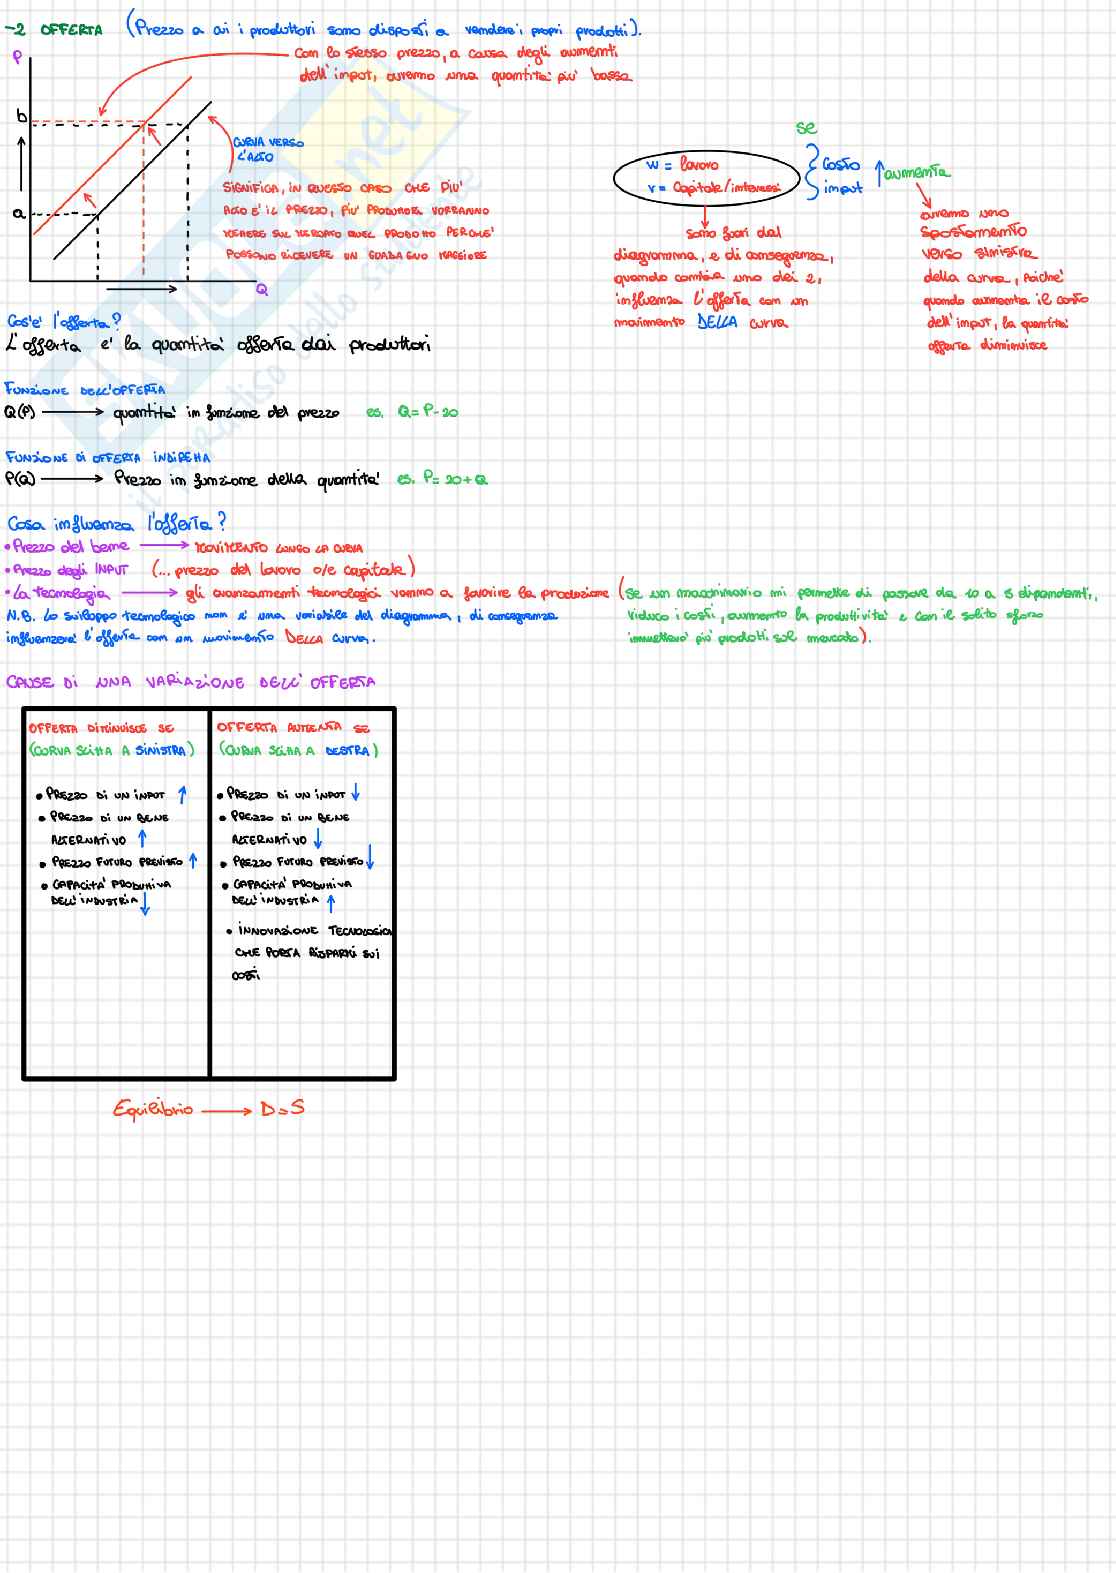 -2 OFFERTA (Prezzo a cui i produttori sono disposti a vendere i propri prodotti).
P
Con lo stesso prezzo, a causa degli aumenti
dell'input, avremo una quantità più bassa
b
a
Q
CURVA VERSO
L'ALTO
SIGNIFICA, IN QUESTO CASO CHE PIU'
ALTO E' IL PREZZO, PIU' PRODUTTORI VORRANNO
METTERE SUL MERCATO QUEL PRODOTTO PERCHE'
POSSONO RICEVERE UN GUADAGNO MAGGIORE
se
w = lavoro
r = Capitale/interessi
Costo
input
aumenta
sono fuori dal
diagramma, e di conseguenza,
quando cambia uno dei 2,
influenza l'offerta con un
movimento DELLA curva
avremo uno
spostamento
verso sinistra
della curva, poiché
quando aumenta il costo
dell'input, la quantità
offerta diminuisce
Cos'e' l'offerta?
L'offerta e' la quantità offerta dai produttori
FUNZIONE DELL'OFFERTA
Q(P) → quantità in funzione del prezzo es. Q = P - 20
FUNZIONE DI OFFERTA INDIRETTA
P(Q) → Prezzo in funzione della quantità es. P = 20 + Q
Cosa influenza l'offerta?
• Prezzo del bene → MOVIMENTO LUNGO LA CURVA
• Prezzo degli INPUT (... prezzo del lavoro o/e capitale)
• La tecnologia → gli avanzamenti tecnologici vanno a favorire la produzione (se un macchinario mi permette di passare da 10 a 5 dipendenti,
riduco i costi, aumento la produttività e con il solito sforzo
immetterò più prodotti sul mercato).
N.B. Lo sviluppo tecnologico non e' una variabile del diagramma, di conseguenza
influenzerà l'offerta con un movimento DELLA curva.
CAUSE DI UNA VARIAZIONE DELL'OFFERTA
OFFERTA DIMINUISCE SE
(CURVA SLITTA A SINISTRA)
• PREZZO DI UN INPUT ↑
• PREZZO DI UN BENE
ALTERNATIVO ↑
• PREZZO FUTURO PREVISTO ↑
• CAPACITA' PRODUTTIVA
DELL'INDUSTRIA ↓
OFFERTA AUMENTA SE
(CURVA SLITTA A DESTRA)
• PREZZO DI UN INPUT ↓
• PREZZO DI UN BENE
ALTERNATIVO ↓
• PREZZO FUTURO PREVISTO ↓
• CAPACITA' PRODUTTIVA
DELL'INDUSTRIA ↑
• INNOVAZIONE TECNOLOGICA
CHE PORTA RISPARMI SUI
COSTI
Equilibrio → D = S